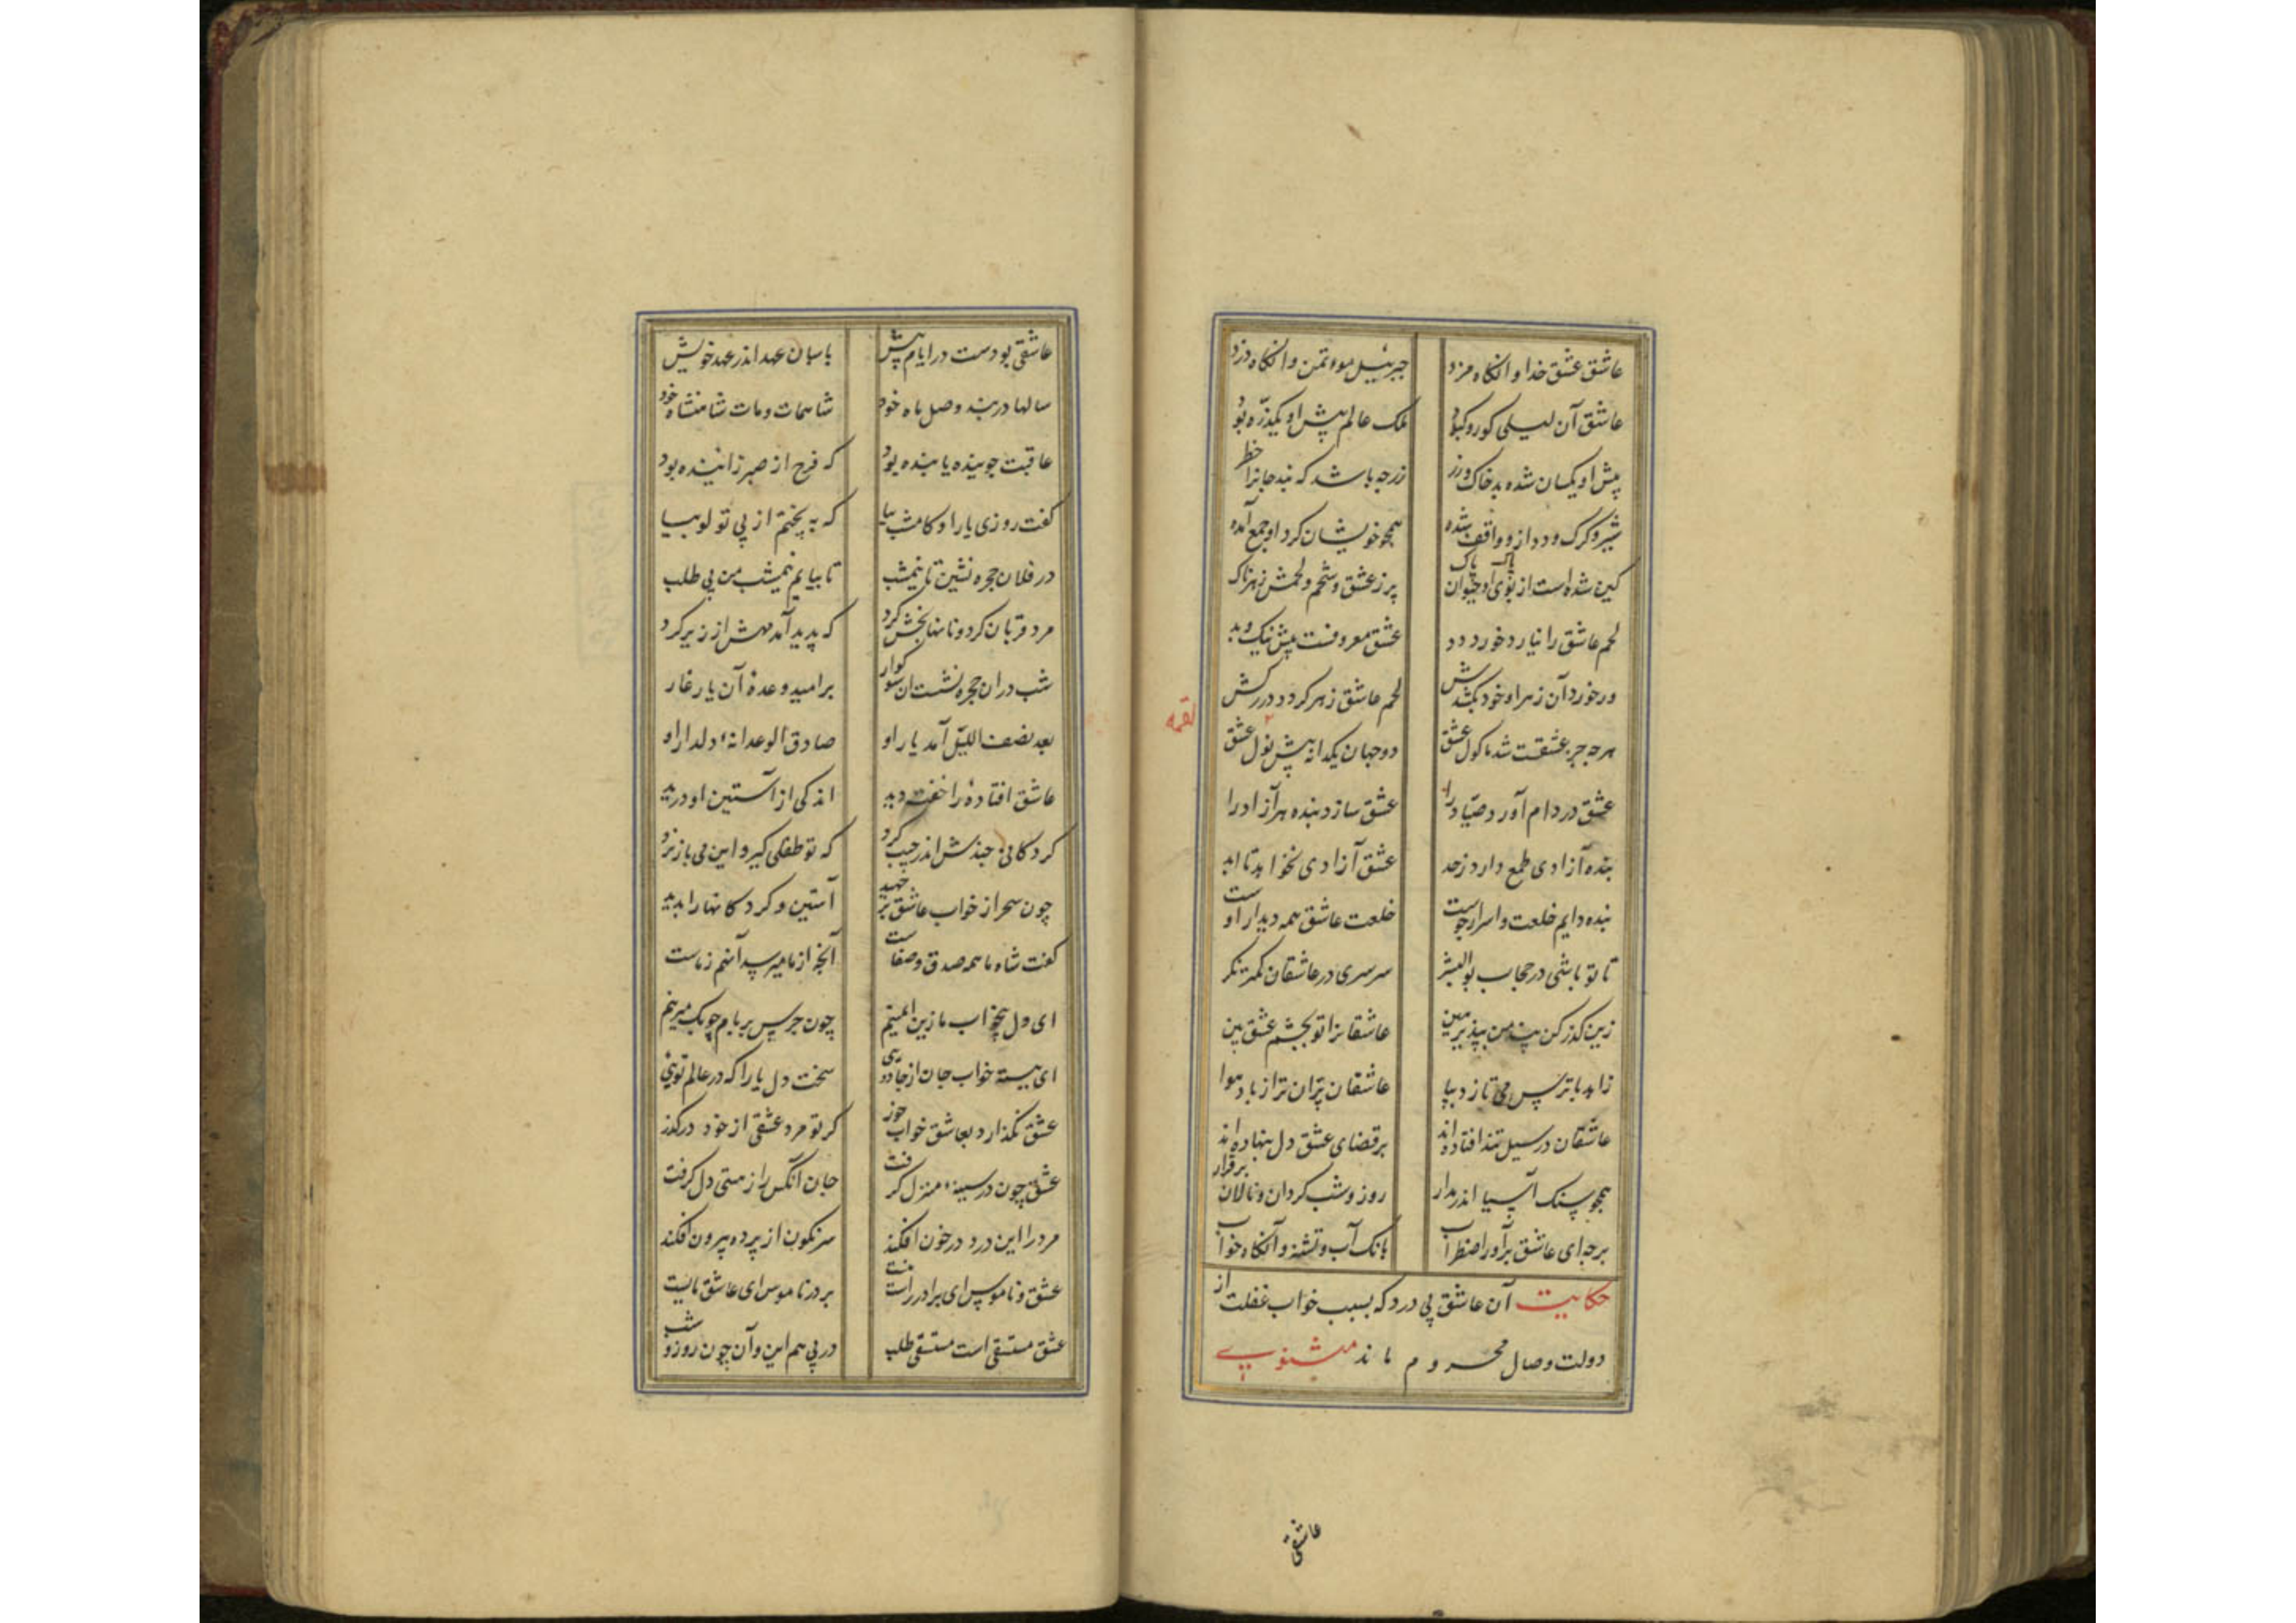 عاشق عشق خدا وانگاه مزد جبرئیل موءتمن وانگاه دزد
عاشق آن لیلی کور و کبود ملک عالم پیش او یکذره بود
پیش او یکسان شده بد خاک و زر زر چه باشد که نبد جانرا خطر
شیر و کرک و دد ازو واقف شده همچو خویشان کرد او جمع آمده
کین شده است از خوی حیوان پاک پاک پر ز عشق و شحم و لحمش زهرناک
لحم عاشق را نیارد خورد دد عشق معروفست پیش نیک و بد
ور خورد آن زهر او خود بکشدش لحم عاشق زهر کردد در کشش
هر چه جز عشقست شد ماکول عشق دو جهان یکدانه پیش نول عشق
لقمه
عشق در دام آورد صیاد را عشق سازد بنده هر آزاد را
بنده آزادی طمع دارد ز حد عشق آزادی نخواهد تا ابد
بنده دایم خلعت و اسرار جوست خلعت عاشق همه دیدار اوست
تا تو باشی در حجاب بوالبشر سرسری در عاشقان کمتر نکر
زین کذر کن پند من بپذیر هین عاشقانرا تو بچشم عشق بین
زاهد با ترس می تازد بپا عاشقان پران تر از باد هوا
عاشقان در سیل تند افتاده اند بر قضای عشق دل بنهاده اند
همچو سنک آسیا اندر مدار روز و شب کردان و نالان برقرار
برجه ای عاشق برآور اضطراب بانک آب و تشنه و آنگاه خواب
حکایت آن عاشق بی درد که بسبب خواب غفلت از
دولت وصال محروم ماند مثنوی
عاشقی
عاشقی بودست در ایام پیش پاسبان عهد اندر عهد خویش
سالها در بند وصل ماه خود شاهمات و مات شاهنشاه خود
عاقبت جوینده یابنده بود که فرج از صبر زاینده بود
کفت روزی یار او کامشب بیا که بپختم از پی تو لوبیا
در فلان حجره نشین تا نیمشب تا بیایم نیمشب من بی طلب
مرد قربان کرد و نانها بخش کرد که پدید آمد مهش از زیر کرد
شب در ان حجره نشست ان سوکوار بر امید وعدهٔ آن یار غار
بعد نصف اللیل آمد یار او صادق الوعدانه دلدار او
عاشق افتادهٔ را خفته دید اندکی از آستین او درید
کردکانی چندش اندر جیب کرد که تو طفلی کیر و این می باز نرد
چون سحر از خواب عاشق بر جهید آستین و کردکانها را بدید
کفت شاه ما همه صدق و صفاست آنچه از ما میرسد آنهم ز ماست
ای دل بیخواب ما زین ایمنیم چون حرس بر بام چوبک میزنیم
ای ببسته خواب جان از جادویی سخت دل یارا که در عالم تویی
عشق نکذارد بعاشق خواب خوز کر تو مرد عشقی از خود درکذر
عشق چون در سینه منزل کرفت جان آنکس را ز مستی دل کرفت
مرد را این درد در خون افکند سرنکون از پرده بیرون افکند
عشق و ناموس ای برادر راست نیست بر در ناموس ای عاشق مایست
عشق مستسقی است مستسقی طلب در پی هم این و آن چون روز و شب